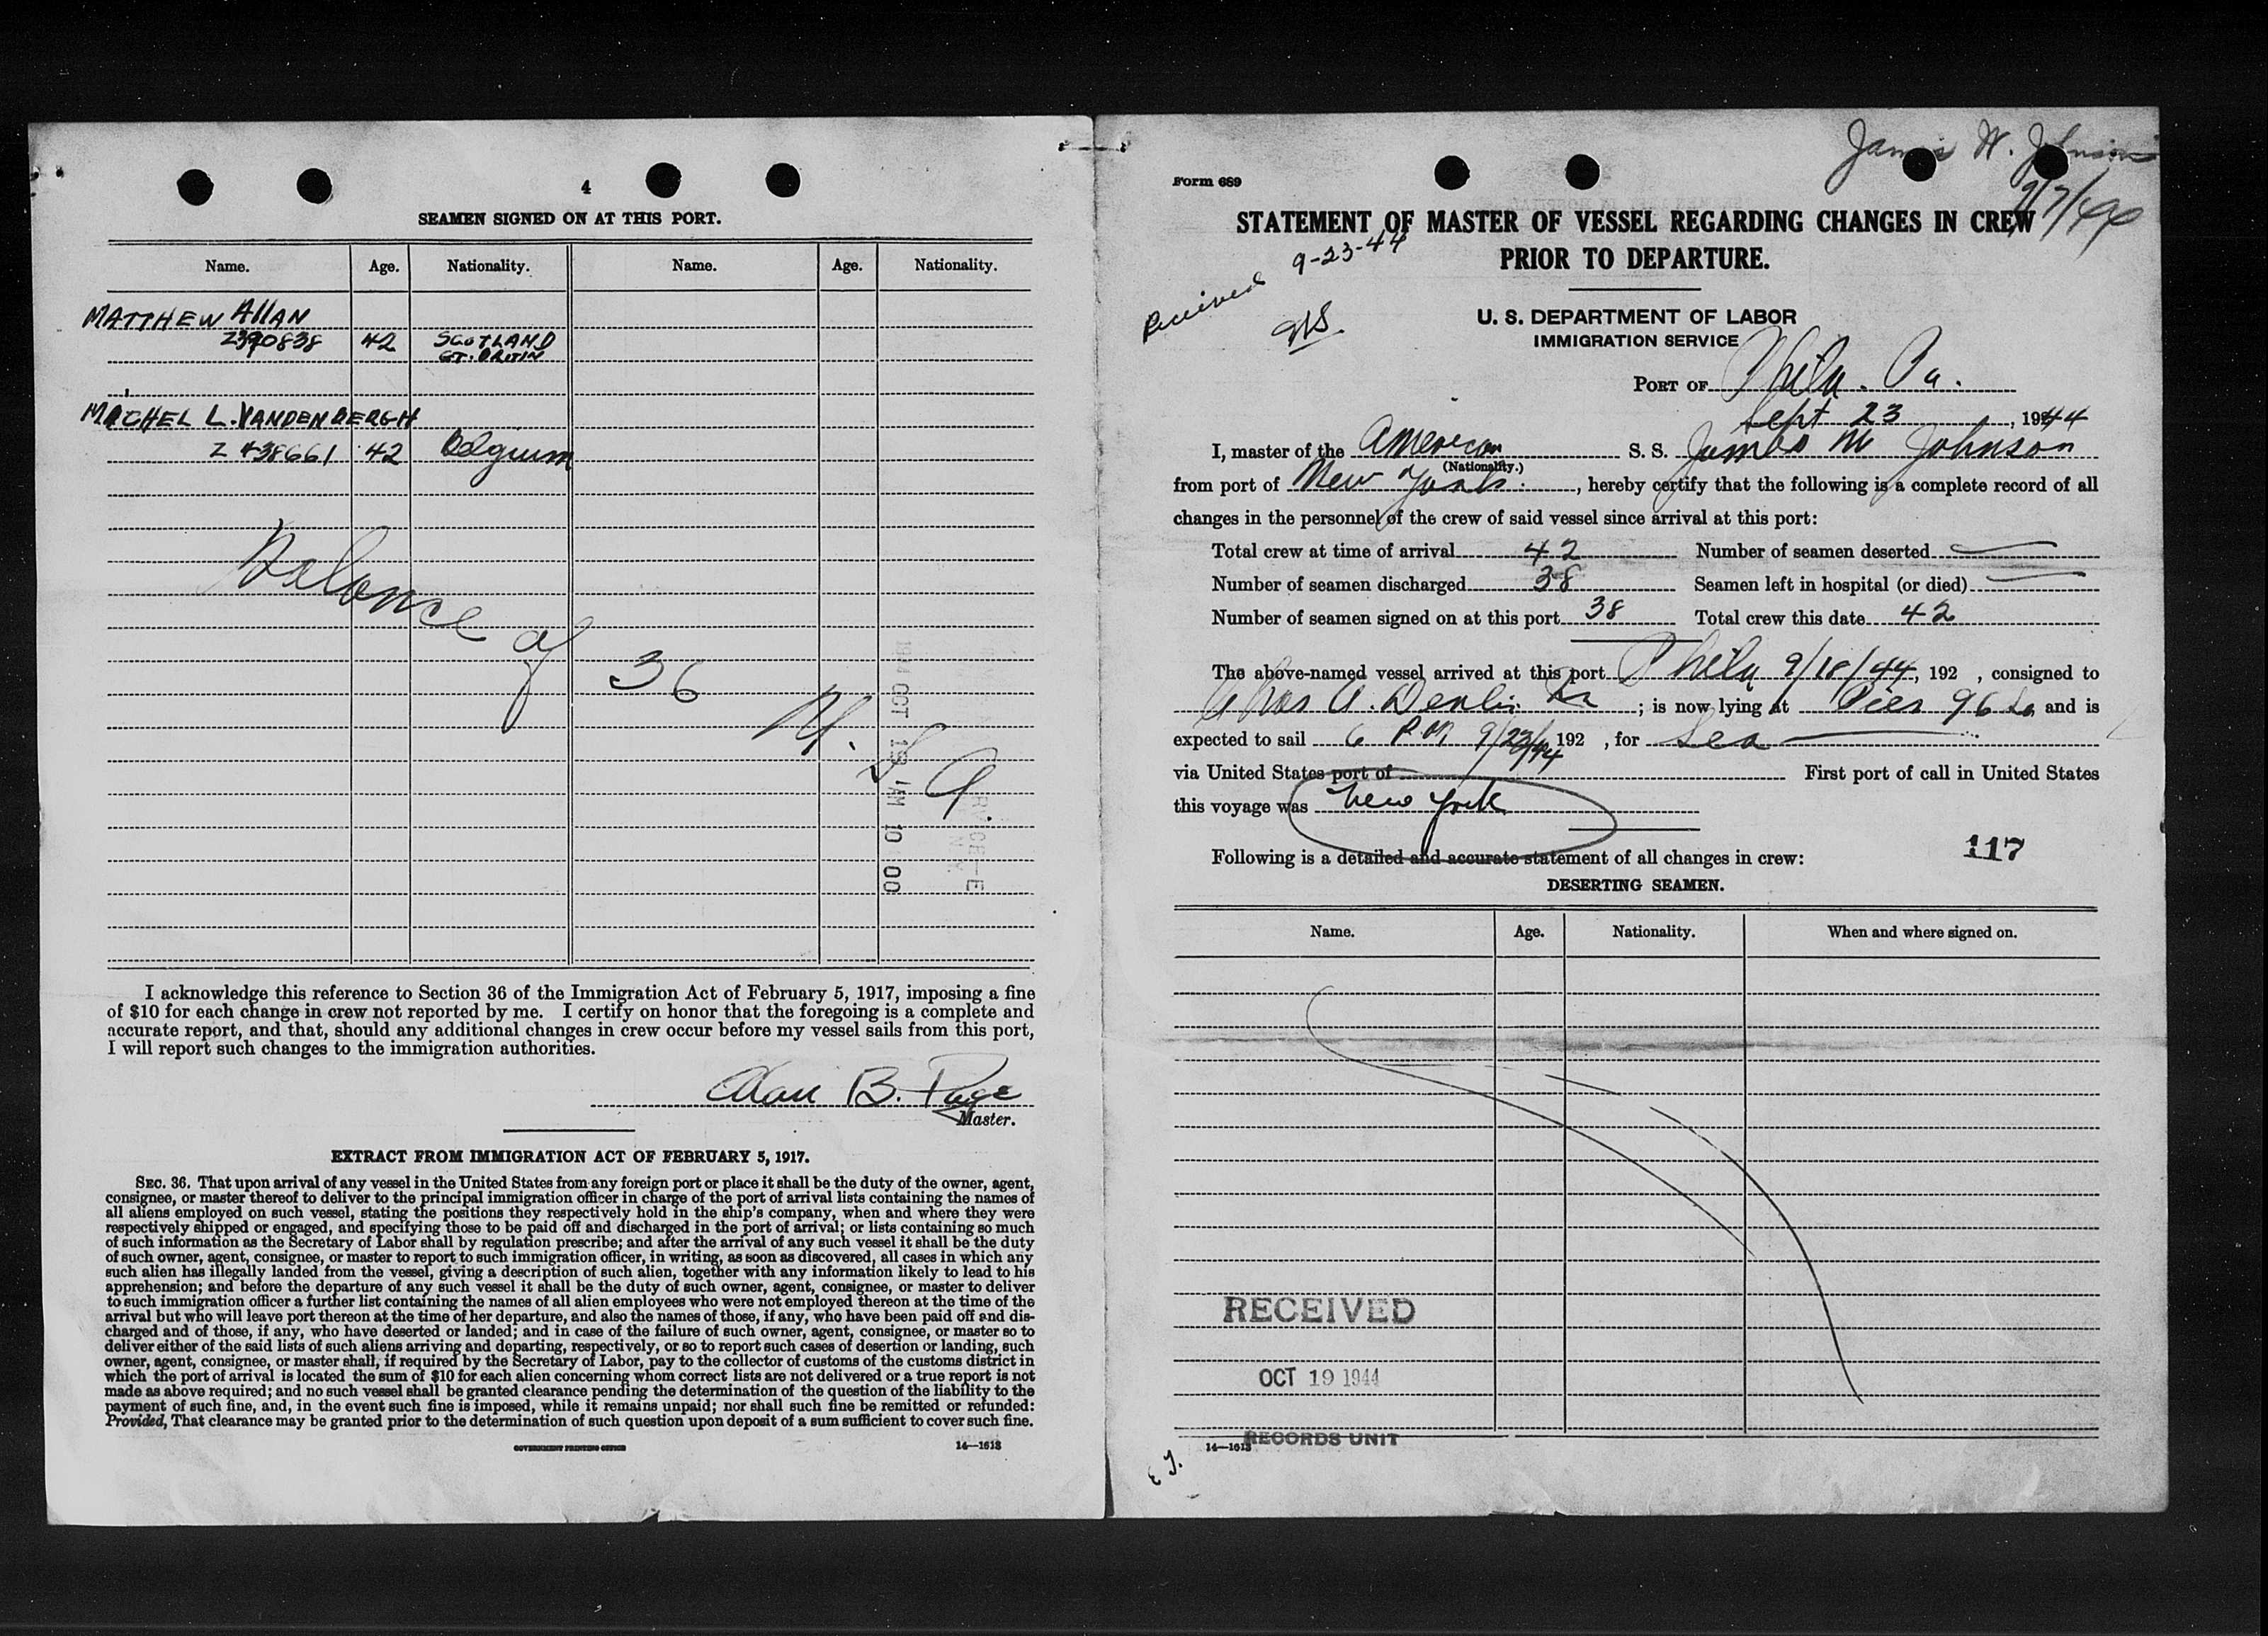 4
SEAMEN SIGNED ON AT THIS PORT.
Name. Age. Nationality. Name. Age. Nationality.
MATTHEW AllAN
Z390838 42 SCOTLAND
GT. BRITIN
MACHEL L. VANDENBERGH
Z 438661 42 Belgium
Balance of 36
OCT 19 AM 10 00
I acknowledge this reference to Section 36 of the Immigration Act of February 5, 1917, imposing a fine
of $10 for each change in crew not reported by me. I certify on honor that the foregoing is a complete and
accurate report, and that, should any additional changes in crew occur before my vessel sails from this port,
I will report such changes to the immigration authorities.
Alan B. Page
Master.
EXTRACT FROM IMMIGRATION ACT OF FEBRUARY 5, 1917.
SEC. 36. That upon arrival of any vessel in the United States from any foreign port or place it shall be the duty of the owner, agent,
consignee, or master thereof to deliver to the principal immigration officer in charge of the port of arrival lists containing the names of
all aliens employed on such vessel, stating the positions they respectively hold in the ship's company, when and where they were
respectively shipped or engaged, and specifying those to be paid off and discharged in the port of arrival; or lists containing so much
of such information as the Secretary of Labor shall by regulation prescribe; and after the arrival of any such vessel it shall be the duty
of such owner, agent, consignee, or master to report to such immigration officer, in writing, as soon as discovered, all cases in which any
such alien has illegally landed from the vessel, giving a description of such alien, together with any information likely to lead to his
apprehension; and before the departure of any such vessel it shall be the duty of such owner, agent, consignee, or master to deliver
to such immigration officer a further list containing the names of all alien employees who were not employed thereon at the time of the
arrival but who will leave port thereon at the time of her departure, and also the names of those, if any, who have been paid off and dis-
charged and of those, if any, who have deserted or landed; and in case of the failure of such owner, agent, consignee, or master so to
deliver either of the said lists of such aliens arriving and departing, respectively, or so to report such cases of desertion or landing, such
owner, agent, consignee, or master shall, if required by the Secretary of Labor, pay to the collector of customs of the customs district in
which the port of arrival is located the sum of $10 for each alien concerning whom correct lists are not delivered or a true report is not
made as above required; and no such vessel shall be granted clearance pending the determination of the question of the liability to the
payment of such fine, and, in the event such fine is imposed, while it remains unpaid; nor shall such fine be remitted or refunded:
Provided, That clearance may be granted prior to the determination of such question upon deposit of a sum sufficient to cover such fine.
GOVERNMENT PRINTING OFFICE 14—1613
James W. Johnson
Form 689
STATEMENT OF MASTER OF VESSEL REGARDING CHANGES IN CREW
PRIOR TO DEPARTURE.
Received 9-23-44
U. S. DEPARTMENT OF LABOR
IMMIGRATION SERVICE
PORT OF Phila. Pa.
Sept 23, 1944
I, master of the American S. S. James W Johnson
(Nationality.)
from port of New York, hereby certify that the following is a complete record of all
changes in the personnel of the crew of said vessel since arrival at this port:
Total crew at time of arrival 42 Number of seamen deserted
Number of seamen discharged 38 Seamen left in hospital (or died)
Number of seamen signed on at this port 38 Total crew this date 42
The above-named vessel arrived at this port Phila 9/18/44, 192 , consigned to
Chas A. ; is now lying at Pier 96 So and is
expected to sail 6 PM 9/23/44 192 , for Sea
via United States port of First port of call in United States
this voyage was New York
Following is a detailed and accurate statement of all changes in crew: 117
DESERTING SEAMEN.
Name. Age. Nationality. When and where signed on.
RECEIVED
OCT 19 1944
RECORDS UNIT
14—1613